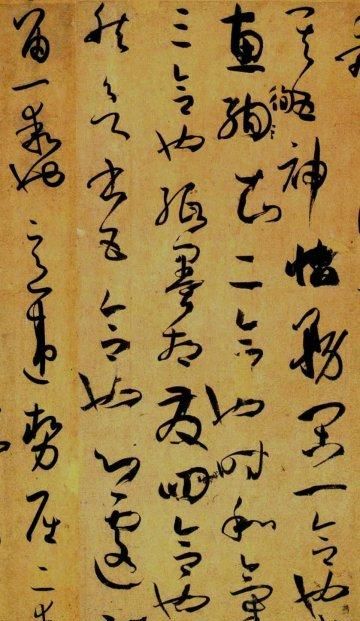 其五神怡務閑一合也
惠徇知二合也時和氣
三合也紙墨相發四合也
然欲書五合也心遽
留一乖也意違勢屈二乖